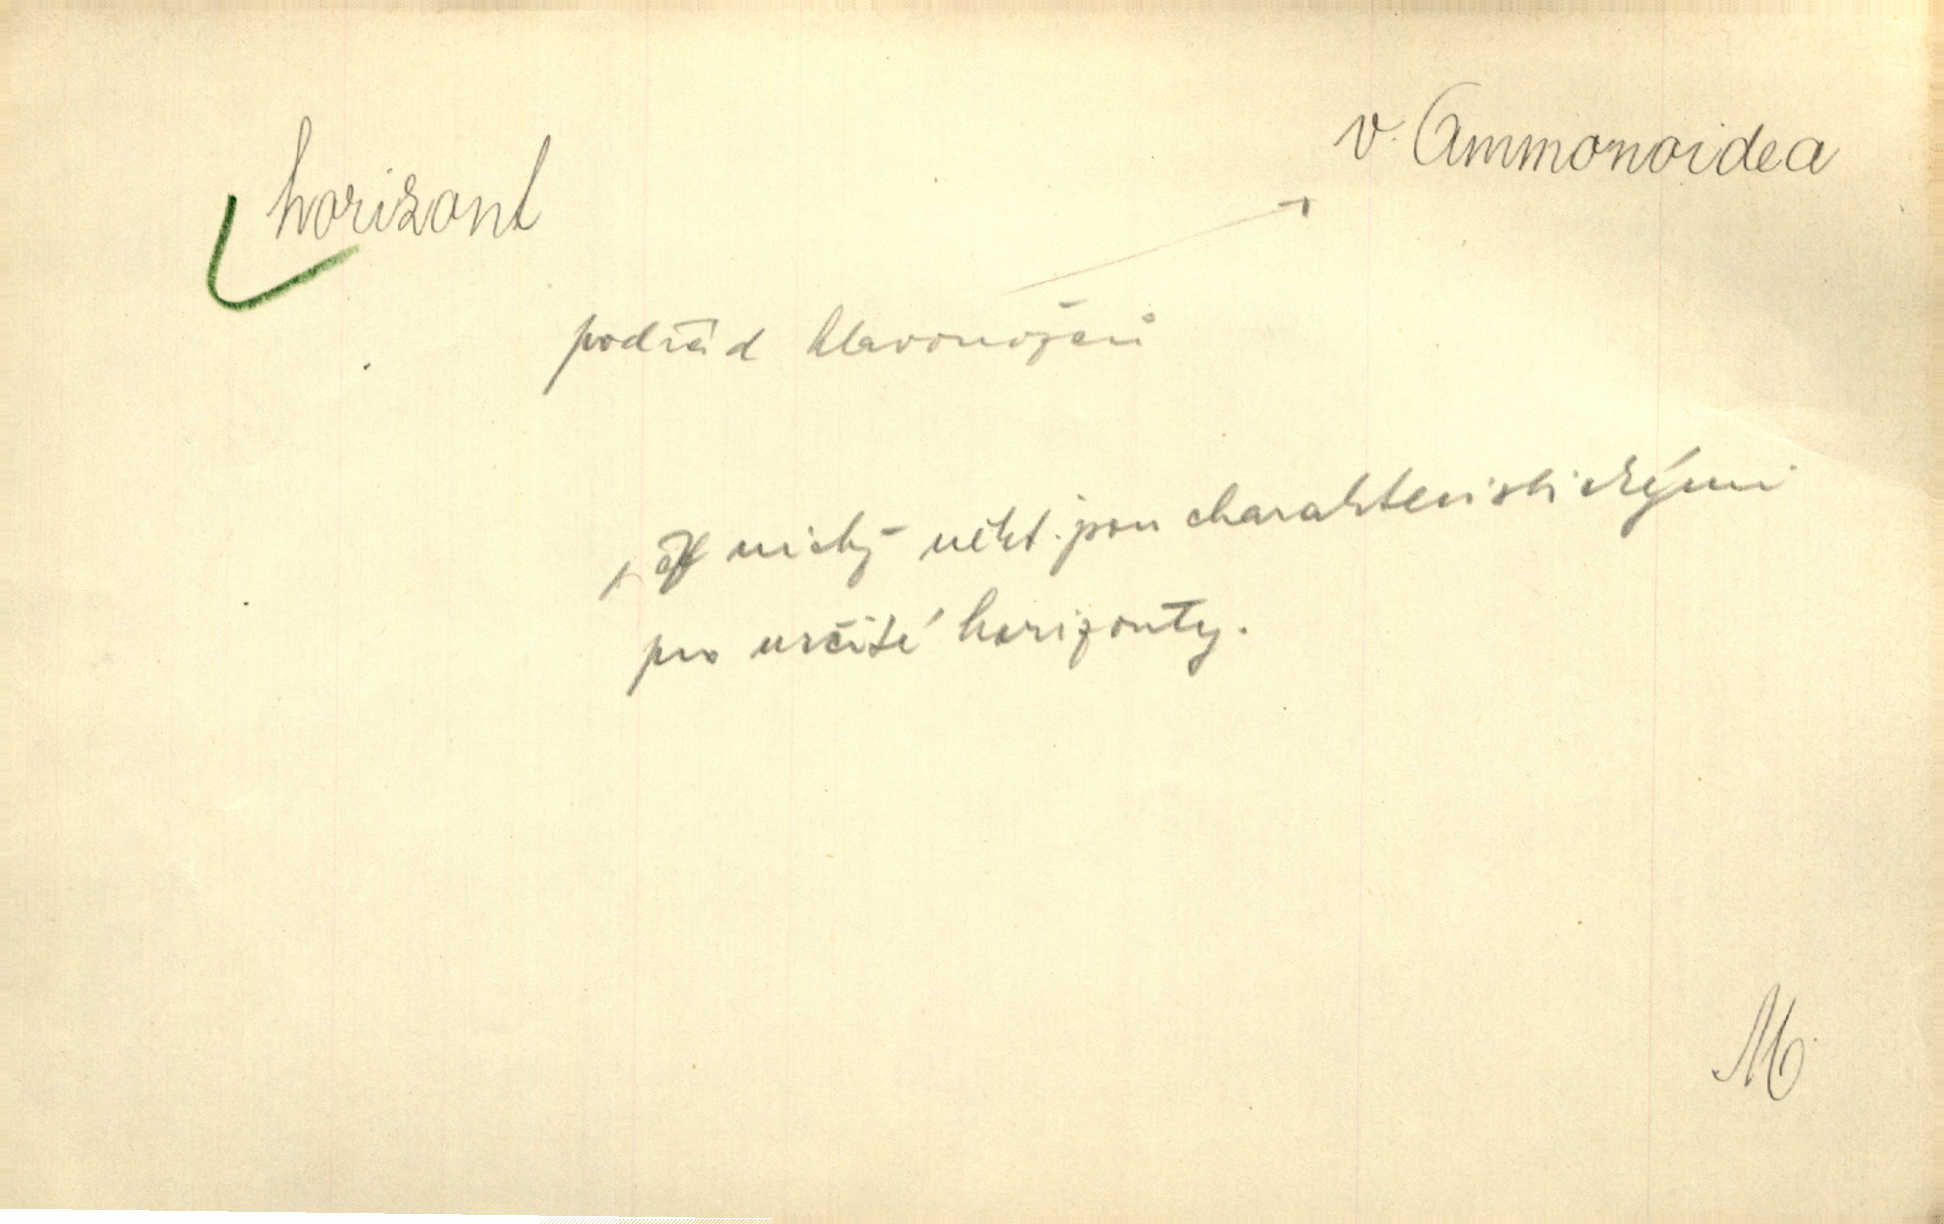 horizont
v. Ammonoidea
podřád hlavonožců
, z nichž někt. jsou charakteristickými
pro určité horizonty.
M.